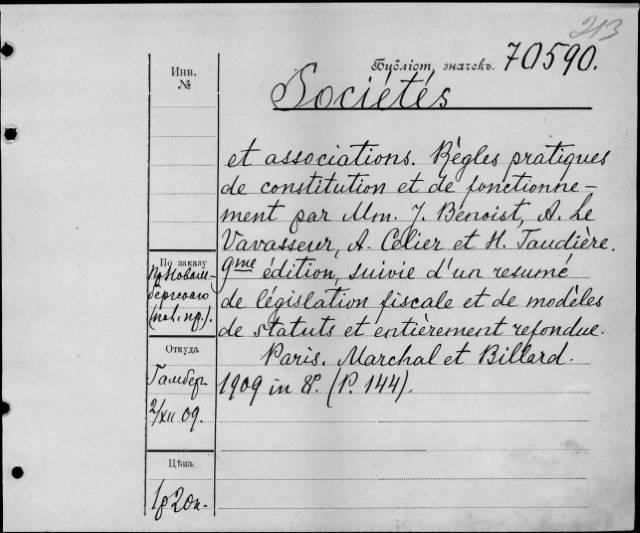 213
Инв.
№
Библіот. значекъ. 70590.
Sociétés
et associations. Règles pratiques
de constitution et de fonctionne-
ment par Mm. J. Benoist, A. Le
Vavasseur, A. Celier et H. Taudière.
9me édition, suivie d'un resumé
de législation fiscale et de modèles
de statuts et entièrement refondue.
Paris. Marchal et Billard.
1909 in 8º. (P. 144).
По заказу
Откуда
Гамбер.
2/XII 09.
Цѣна
1р 20к.